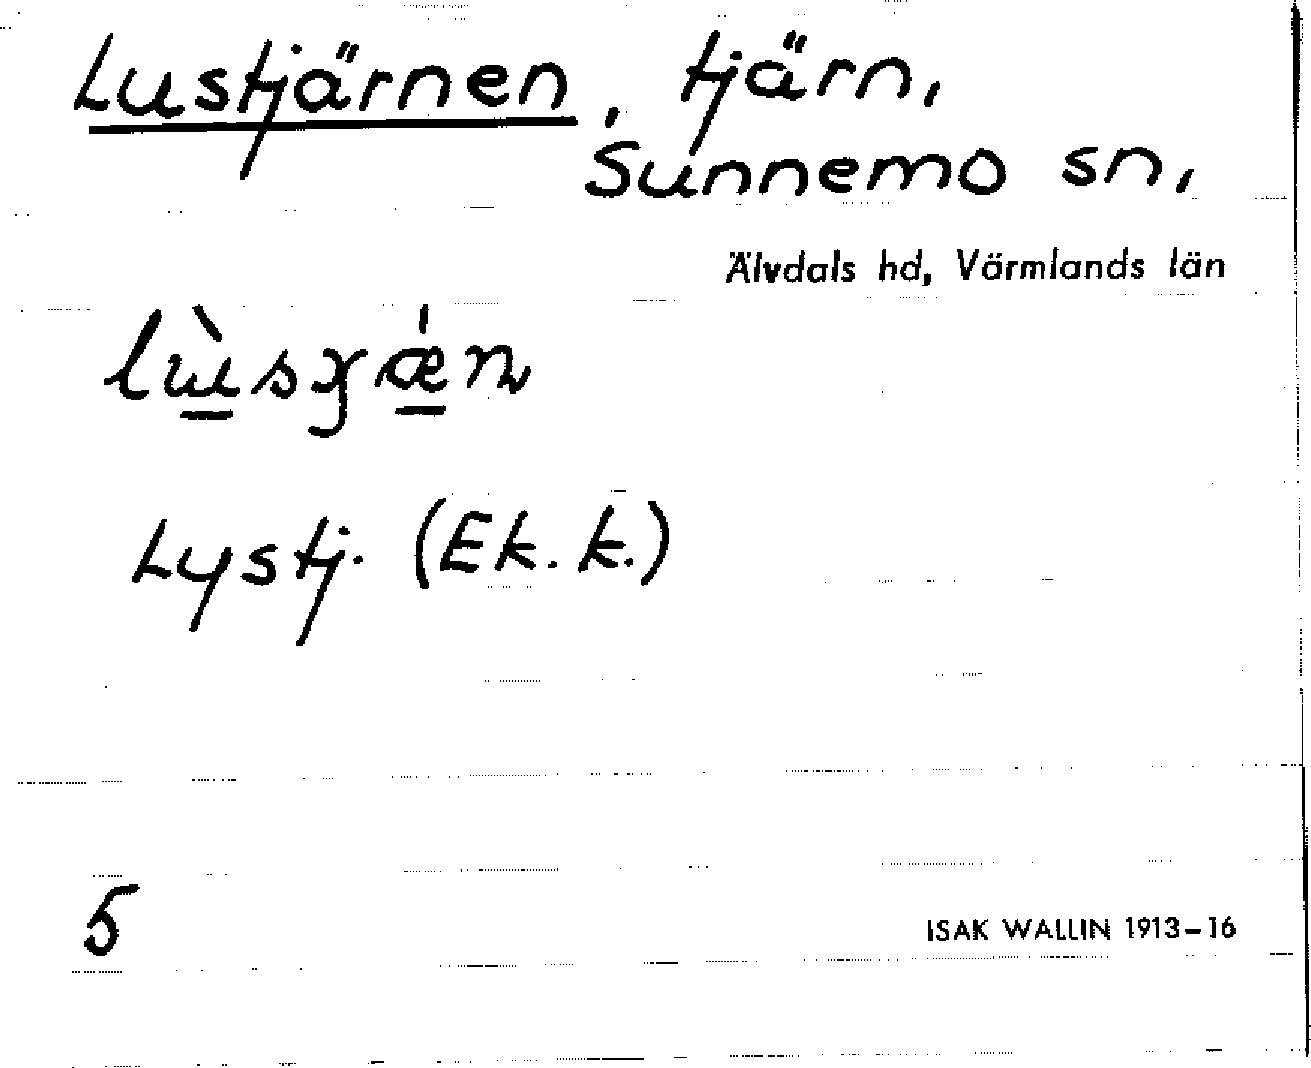 Lustjärnen, tjärn,
Sunnemo sn,
Älvdals hd, Värmlands län
Lystj. (Ek. k.)
5
ISAK WALLIN 1913-16